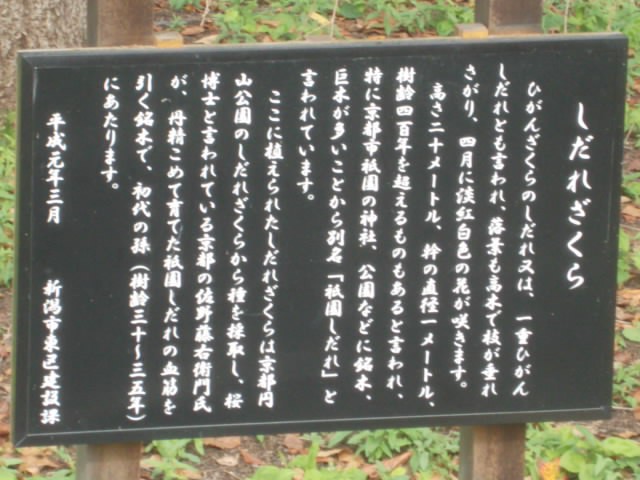 しだれざくら
ひがんざくらのしだれ又は、一重ひがん
しだれとも言われ、落葉も高木で枝が垂れ
さがり、四月に淡紅白色の花が咲きます。
高さ二十メートル、幹の直径一メートル、
樹齢四百年を超えるものもあると言われ、
特に京都市祇園の神社、公園などに銘木、
巨木が多いことから別名「祇園しだれ」と
言われています。
ここに植えられたしだれざくらは京都円
山公園のしだれざくらから種を採取し、桜
博士と言われている京都の佐野藤右衛門氏
が、丹精こめて育てた祇園しだれの血筋を
引く銘木で、初代の孫（樹齢三十〜三五年）
にあたります。
平成元年三月 新潟市東邑建設課